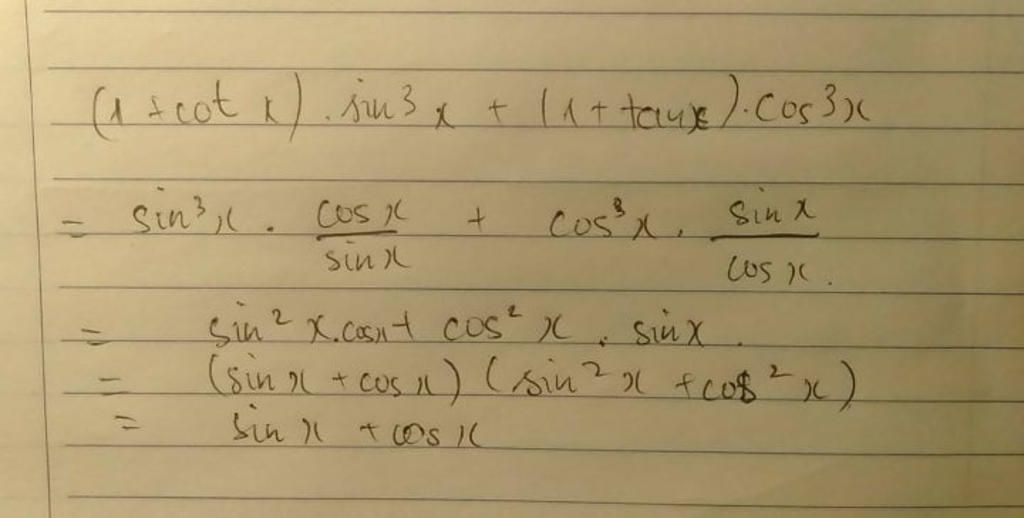 (1 + cot x) . sin3 x + (1 + tanx) . cos3x
= sin³x . cos x / sin x + cos³x . sin x / cos x .
= sin² x.cosx + cos² x . sin x .
= (sin x + cos x) (sin² x + cos² x)
= sin x + cos x